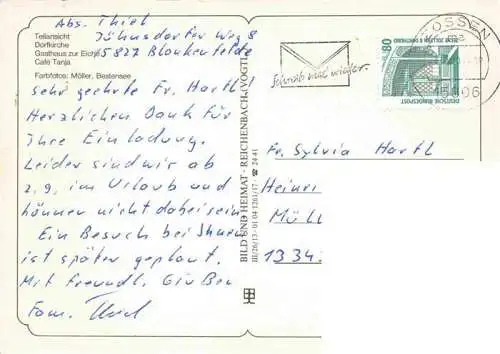 Abs. Thiel
Jühnsdorfer Weg 8
15827 Blankenfelde
Teilansicht
Dorfkirche
Gasthaus zur Eiche
Café Tanja
Farbfotos: Möller, Bestensee
Sehr geehrte Fr. Hartl!
Herzlichen Dank für
Ihre Einladung.
Leider sind wir ab
2.9. im Urlaub und
können nicht dabei sein.
Ein Besuch bei Ihnen
ist später geplant.
Mit freundl. Grüßen
Fam. Thiel
BILD UND HEIMAT · REICHENBACH (VOGTL
III/26/13 · 01 04 1261/17 · ☎ 24 41
Schreib mal wieder.
OSSEN
80
DEUTSCHE BUNDESPOST
Fr. Sylvia Hartl
Heinri
Müll
1334